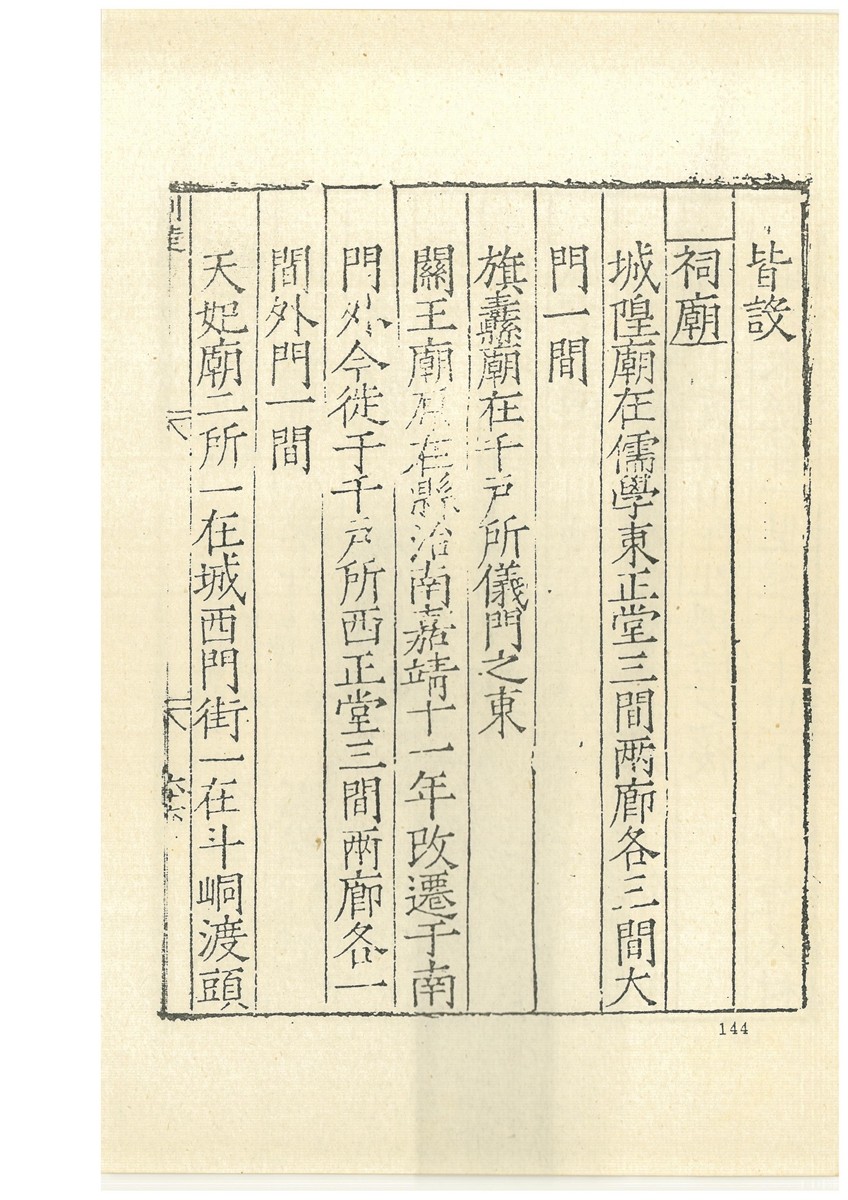 皆設
祠廟
城隍廟在儒學東正堂三間兩廊各三間大
門一間
旗纛廟在千戶所儀門之東
關王廟原在縣治南嘉靖十一年改遷于南
門外今徙于千戶所西正堂三間兩廊各一
間外門一間
天妃廟二所一在城西門街一在斗峒渡頭
144